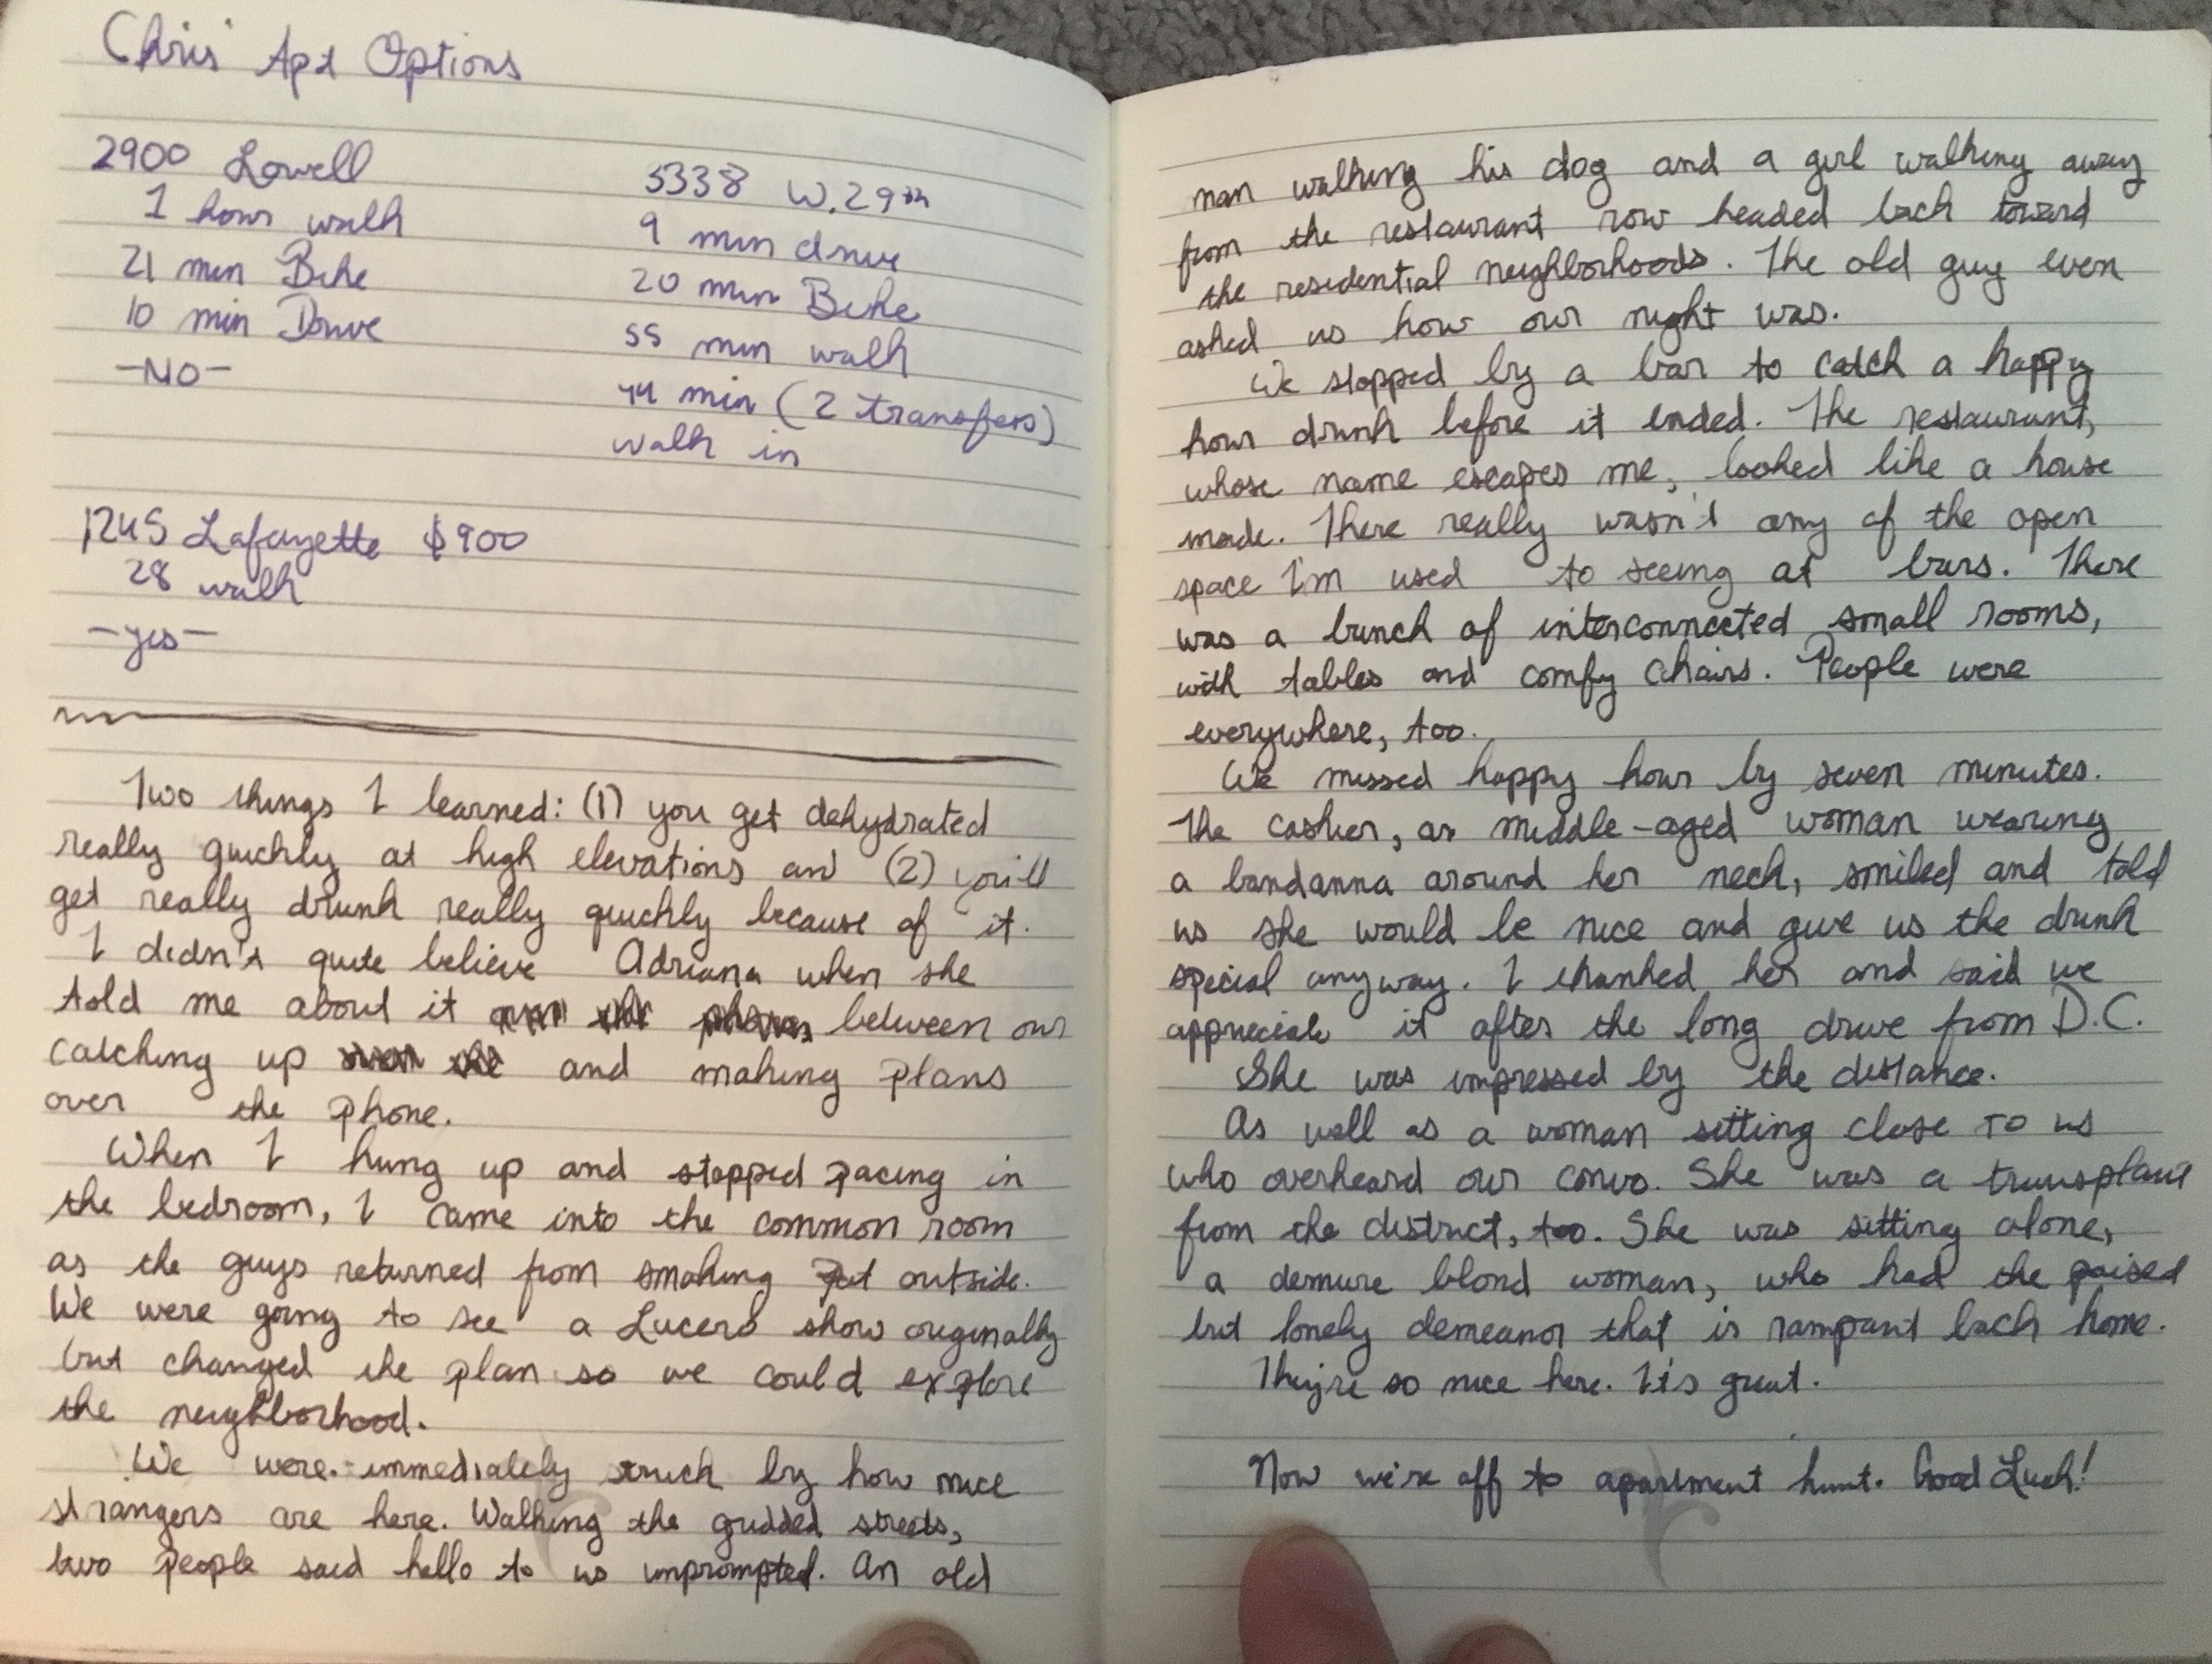 Chris' Apt Options
2900 Lowell
1 hour walk
21 min Bike
10 min Drive
-NO-
5338 W. 29th
9 min drive
20 min Bike
55 min walk
44 min (2 transfers)
walk in
1245 Lafayette $900
28 walk
-yes-
Two things I learned: (1) you get dehydrated
really quickly at high elevations and (2) you'll
get really drunk really quickly because of it.
I didn't quite believe Adriana when she
told me about it between our
catching up and making plans
over the phone.
When I hung up and stopped pacing in
the bedroom, I came into the common room
as the guys returned from smoking pot outside.
We were going to see a Lucero show originally
but changed the plan so we could explore
the neighborhood.
We were immediately struck by how nice
strangers are here. Walking the gridded streets,
two people said hello to us unprompted. An old
man walking his dog and a girl walking away
from the restaurant row headed back toward
the residential neighborhoods. The old guy even
asked us how our night was.
We stopped by a bar to catch a happy
hour drink before it ended. The restaurant,
whose name escapes me, looked like a house
made. There really wasn't any of the open
space I'm used to seeing at bars. There
was a bunch of interconnected small rooms,
with tables and comfy chairs. People were
everywhere, too.
We missed happy hour by seven minutes.
The cashier, a middle-aged woman wearing
a bandanna around her neck, smiled and told
us she would be nice and give us the drink
special anyway. I thanked her and said we
appreciate it after the long drive from D.C.
She was impressed by the distance.
As well as a woman sitting close to us
who overheard our convo. She was a transplant
from the district, too. She was sitting alone,
a demure blond woman, who had the poised
but lonely demeanor that is rampant back home.
They're so nice here. It's great.
Now we're off to apartment hunt. Good Luck!